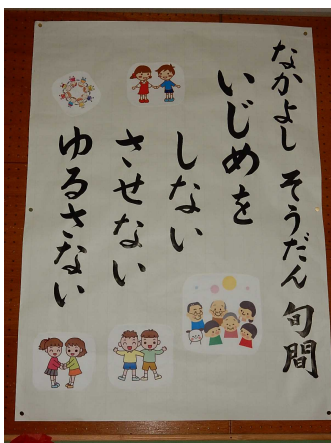 なかよし そうだん 旬間
いじめを
しない
させない
ゆるさない